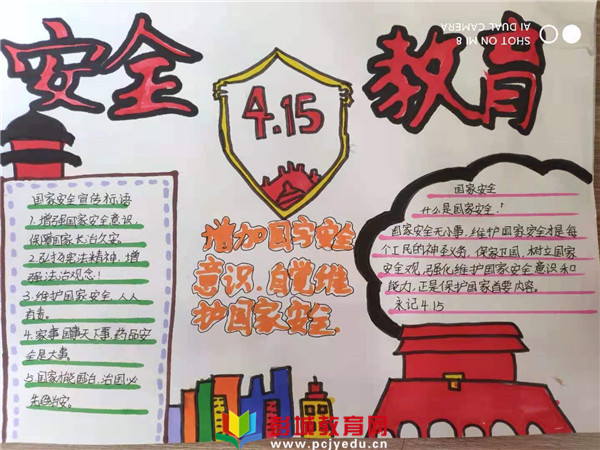 安全
教育
SHOT ON MI 8
AI DUAL CAMERA
4.15
国家安全宣传标语
1.增强国家安全意识,
保障国家长治久安.
2.弘扬宪法精神,增
强法治观念!
3.维护国家安全,人人
有责.
4.家事国事天下事,药品安
全是大事.
先治安.
增加国家安全
意识.自觉维
护国家安全.
国家安全
什么是国家安全.!
国家安全无小事,维护国家安全是每
个人民的神圣义务,保家卫国,树立国家
安全观,强化维护国家安全意识和
能力,正是保护国家首要内容.
永记4.15
彭城教育网
www.pcjyedu.cn